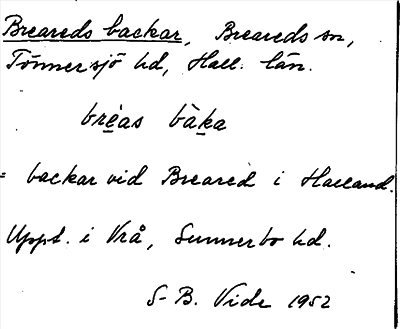 Breareds backar, Breareds sn,
Tönnersjö hd, Hall. län.
brèas bàka
= backar vid Breared i Halland.
Uppt. i Vrå, Sunnerbo hd.
S-B. Vide 1952